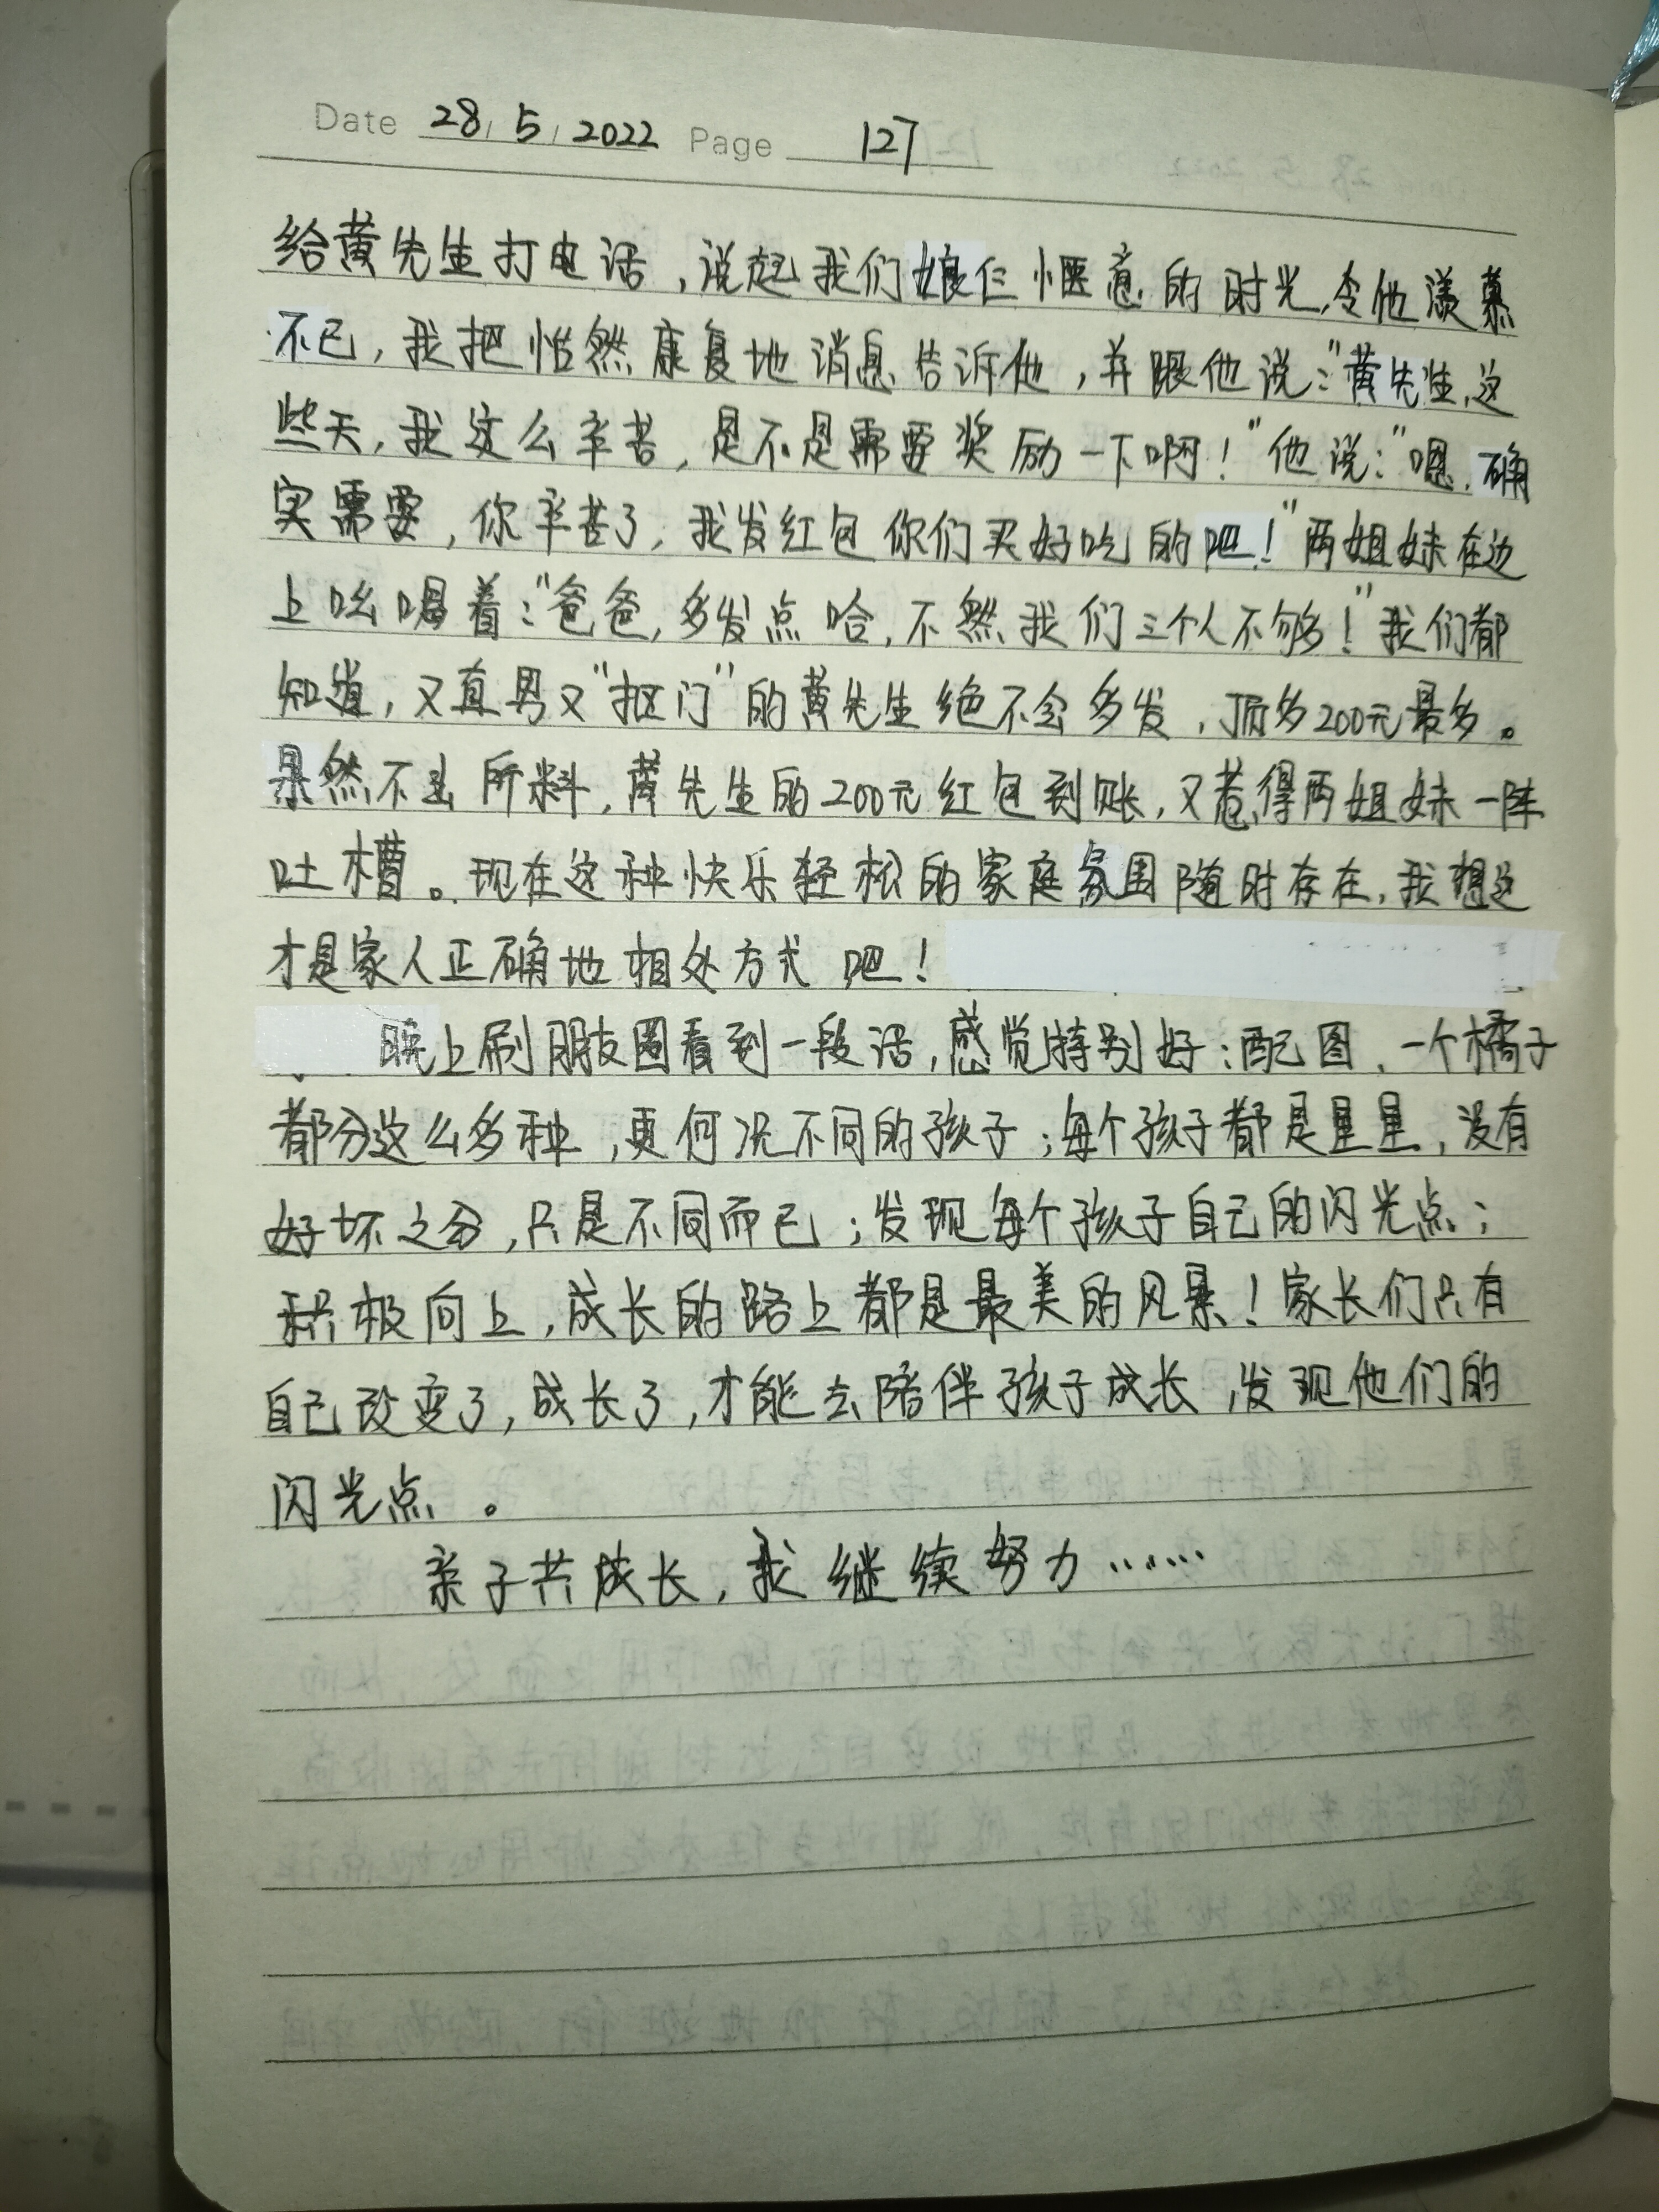 Date 28/5/2022 Page 127
给黄先生打电话,说起我们娘仨惬意的时光,令他羡慕
不已,我把怡然康复地消息告诉他,并跟他说:"黄先生,这
些天,我这么辛苦,是不是需要奖励一下啊!"他说:"嗯,确
实需要,你辛苦了,我发红包你们买好吃的吧!"两姐妹在边
上吆喝着:"爸爸,多发点哈,不然我们三个人不够!"我们都
知道,又直男又"抠门"的黄先生绝不会多发,顶多200元最多。
果然不出所料,黄先生的200元红包到账,又惹得两姐妹一阵
吐槽。现在这种快乐轻松的家庭氛围随时存在,我想这
才是家人正确地相处方式吧!
晚上刷朋友圈看到一段话,感觉特别好:配图,一个橘子
都分这么多种,更何况不同的孩子;每个孩子都是星星,没有
好坏之分,只是不同而已;发现每个孩子自己的闪光点;
积极向上,成长的路上都是最美的风景!家长们只有
自己改变了,成长了,才能去陪伴孩子成长,发现他们的
闪光点。
亲子共成长,我继续努力……